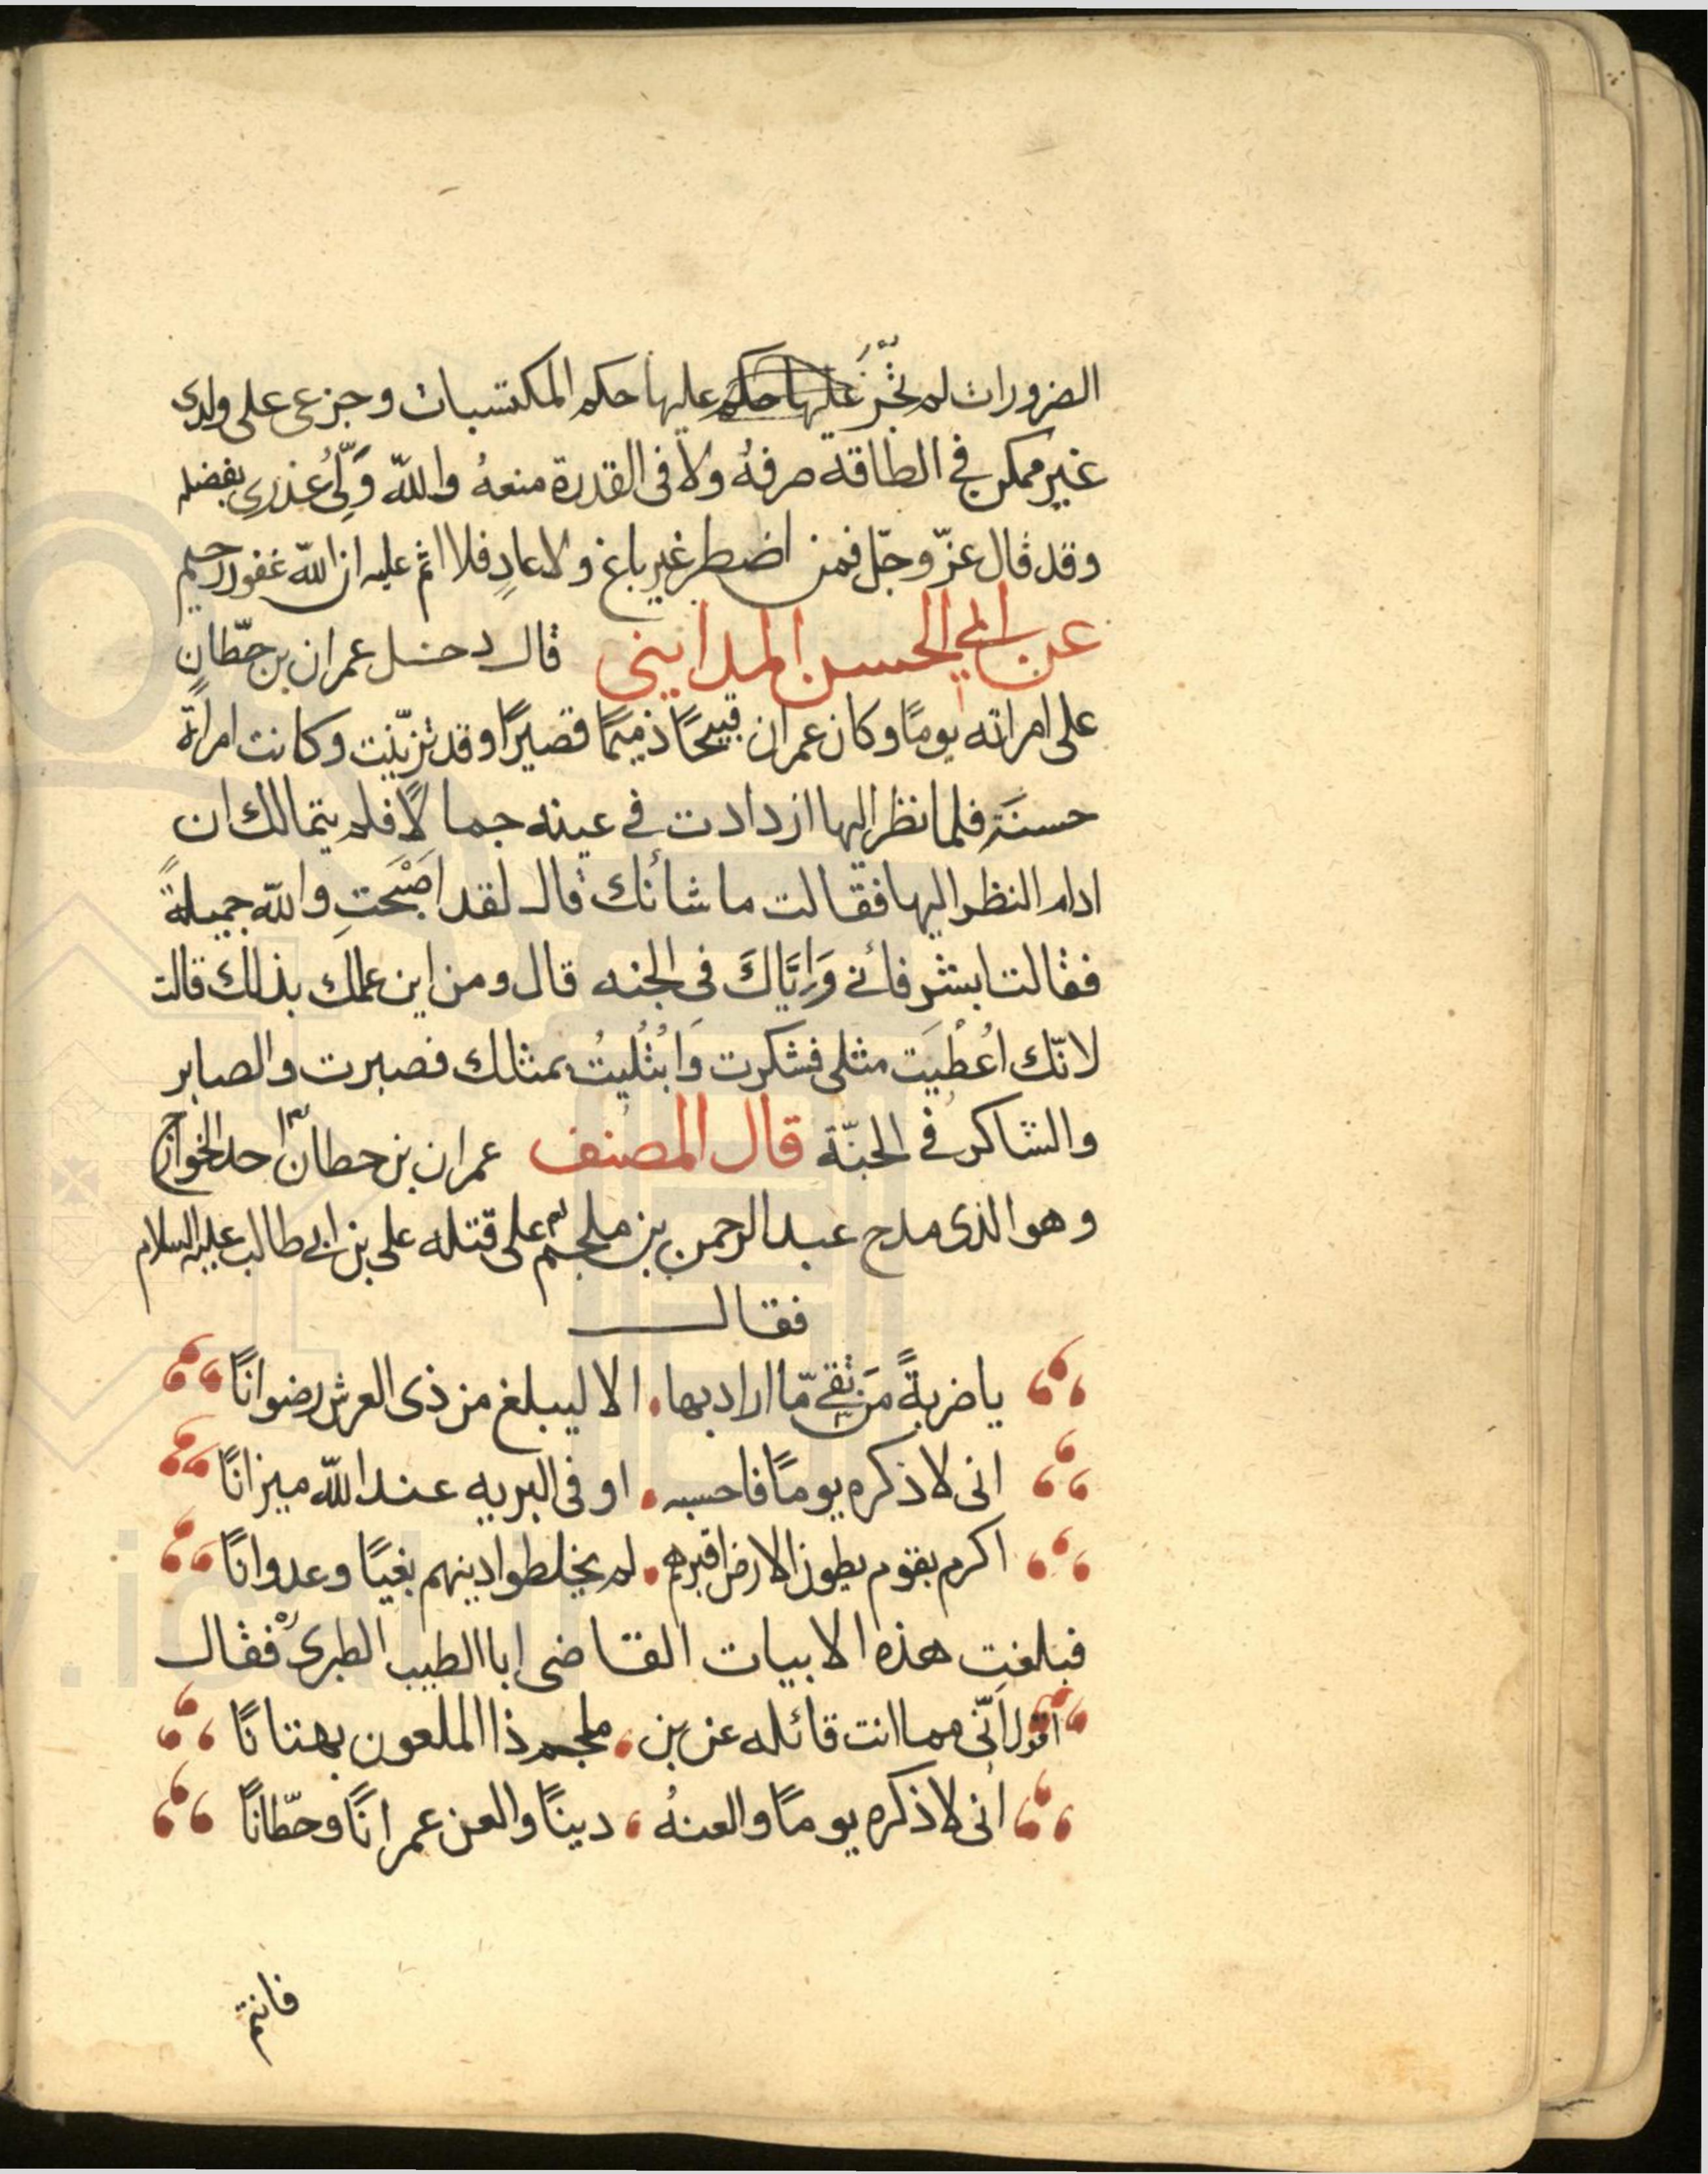 الضرورات لم تُجْرَ عليها حكم عليها حكم المكتسبات وجزعى على ولدى
غير ممكن في الطاقه صرفهُ ولا فى القدرة منعهُ والله وَلِّىُ عذرى بفضله
وقد قال عزّ وجلّ فمن اضطر غير باغ ولا عادٍ فلا اثم عليه ان الله غفور رحيم
عن ابي الحسن المدايني قال دخل عمران بن حطّان
على امراته يومًا وكان عمران قبيحًا ذميمًا قصيرًا وقد تزيّنت وكانت امراةً
حسنَة فلما نظر اليها ازدادت في عينه جمالًا فلم يتمالك ان
ادام النظر اليها فقالت ما شأنك قال لقد اصْبَحتِ والله جميلةً
فقالت ابشر فانى وَاِيَّاكَ فى الجنه قال ومن اين علمك بذلك قالت
لانّك اُعْطِيَت مثلى فشكرت وَابْتُليتُ بمثلك فصبرت والصابر
والشاكر في الجنّة قال المصنف عمران بن حطان احد الخوارج
وهو الذى مدح عبد الرحمن بن ملجم على قتله على بن ابي طالب عليه السلام
فقال
يا ضربةً مَن تقي مّا اراد بها الا ليبلغ من ذى العرش رضوانًا
انى لاذكره يومًا فاحسبه اوفى البريه عند الله ميزانًا
اكرم بقوم بطون الارض اقبرهم لم يخلطوا دينهم بغيًا وعدوانًا
فبلغت هذه الابيات القاضى ابا الطيب الطبرى فقال
اقول انّى مما انت قائله عن بن ملجم ذا الملعون بهتانًا
انى لاذكره يومًا والعنهُ دينًا والعن عمرانًا وحطّانًا